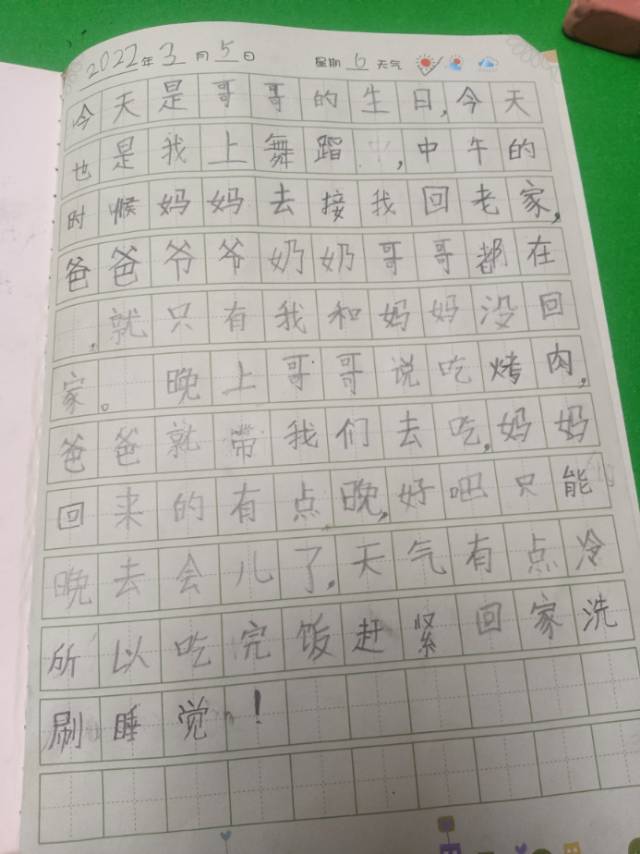 2022年3月5日 星期6天气
今天是哥哥的生日,今天
也是我上舞蹈,中午的
时候妈妈去接我回老家,
爸爸爷爷奶奶哥哥都在
,就只有我和妈妈没回
家。 晚上哥哥说吃烤肉,
爸爸就带我们去吃,妈妈
回来的有点晚,好吧只能
晚去会儿了,天气有点冷
所以吃完饭赶紧回家洗
刷睡觉!